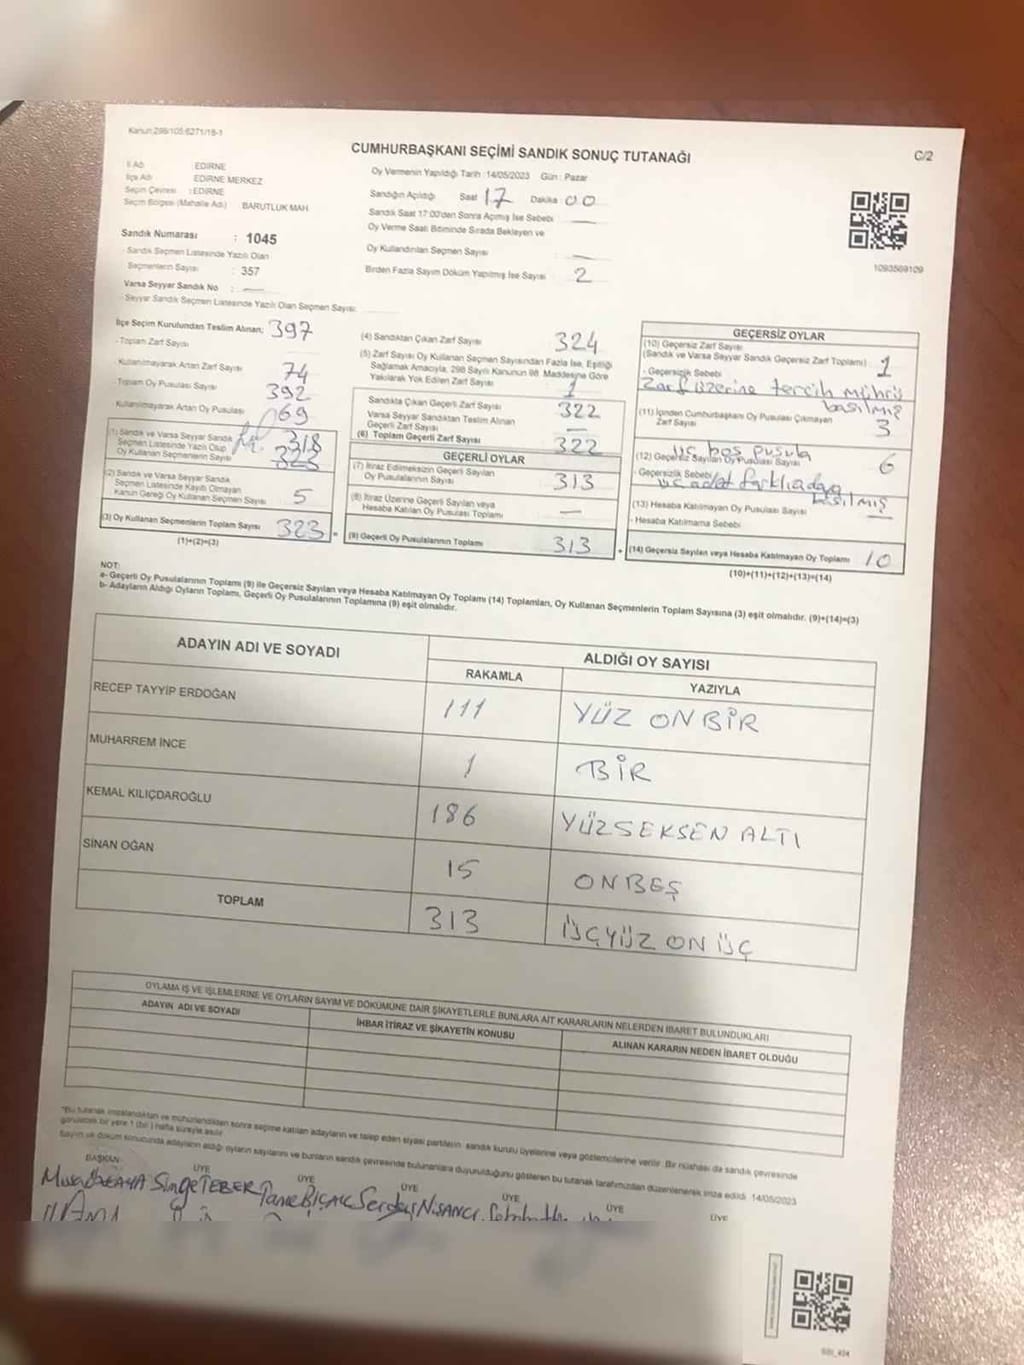 Kanun:298/105;6271/18-1
CUMHURBAŞKANI SEÇİMİ SANDIK SONUÇ TUTANAĞI
C/2
İl Adı : EDİRNE
İlçe Adı EDİRNE MERKEZ
Seçim Çevresi : EDİRNE
Seçim Bölgesi (Mahalle Adı) BARUTLUK MAH.
Sandık Numarası : 1045
Sandık Seçmen Listesinde Yazılı Olan
Seçmenlerin Sayısı : 357
Varsa Seyyar Sandık No : —
Seyyar Sandık Seçmen Listesinde Yazılı Olan Seçmen Sayısı:
Oy Vermenin Yapıldığı Tarih : 14/05/2023 Gün : Pazar
Sandığın Açıldığı Saat 17 Dakika 00
Sandık Saat 17:00'den Sonra Açılmış İse Sebebi —
Oy Verme Saati Bitiminde Sırada Bekleyen ve
Oy Kullandırılan Seçmen Sayısı —
Birden Fazla Sayım Döküm Yapılmış İse Sayısı 2
1093569109
İlçe Seçim Kurulundan Teslim Alınan; 397
- Toplam Zarf Sayısı
Kullanılmayarak Artan Zarf Sayısı 74
Toplam Oy Pusulası Sayısı 392
Kullanılmayarak Artan Oy Pusulası 69
(1) Sandık ve Varsa Seyyar Sandık
Seçmen Listesinde Yazılı Olup 318
Oy Kullanan Seçmenlerin Sayısı
(2) Sandık ve Varsa Seyyar Sandık
Seçmen Listesinde Kayıtlı Olmayan
Kanun Gereği Oy Kullanan Seçmen Sayısı 5
(3) Oy Kullanan Seçmenlerin Toplam Sayısı 323
(1)+(2)=(3)
(4) Sandıktan Çıkan Zarf Sayısı 324
(5) Zarf Sayısı Oy Kullanan Seçmen Sayısından Fazla İse, Eşitliği
Sağlamak Amacıyla, 298 Sayılı Kanunun 98. Maddesine Göre
Yakılarak Yok Edilen Zarf Sayısı 1
Sandıkta Çıkan Geçerli Zarf Sayısı 322
Varsa Seyyar Sandıktan Teslim Alınan
Geçerli Zarf Sayısı —
(6) Toplam Geçerli Zarf Sayısı 322
GEÇERLİ OYLAR
(7) İtiraz Edilmeksizin Geçerli Sayılan
Oy Pusulalarının Sayısı 313
(8) İtiraz Üzerine Geçerli Sayılan veya
Hesaba Katılan Oy Pusulası Toplamı —
(9) Geçerli Oy Pusulalarının Toplamı 313
GEÇERSİZ OYLAR
(10) Geçersiz Zarf Sayısı
(Sandık ve Varsa Seyyar Sandık Geçersiz Zarf Toplamı) 1
- Geçersizlik Sebebi
Zarf üzerine tercih mührü
basılmış
(11) İçinden Cumhurbaşkanı Oy Pusulası Çıkmayan
Zarf Sayısı 3
üç boş pusula
(12) Geçersiz Sayılan Oy Pusulası Sayısı 6
- Geçersizlik Sebebi
üç adet farklı adaya
basılmış
(13) Hesaba Katılmayan Oy Pusulası Sayısı —
- Hesaba Katılmama Sebebi
(14) Geçersiz Sayılan veya Hesaba Katılmayan Oy Toplamı 10
(10)+(11)+(12)+(13)=(14)
NOT:
a- Geçerli Oy Pusulalarının Toplamı (9) ile Geçersiz Sayılan veya Hesaba Katılmayan Oy Toplamı (14) Toplamları, Oy Kullanan Seçmenlerin Toplam Sayısına (3) eşit olmalıdır. (9)+(14)=(3)
b- Adayların Aldığı Oyların Toplamı, Geçerli Oy Pusulalarının Toplamına (9) eşit olmalıdır.
ADAYIN ADI VE SOYADI
ALDIĞI OY SAYISI
RAKAMLA YAZIYLA
RECEP TAYYİP ERDOĞAN 111 YÜZ ONBİR
MUHARREM İNCE 1 BİR
KEMAL KILIÇDAROĞLU 186 YÜZSEKSEN ALTI
SİNAN OĞAN 15 ONBEŞ
TOPLAM 313 ÜÇYÜZ ON ÜÇ
OYLAMA İŞ VE İŞLEMLERİNE VE OYLARIN SAYIM VE DÖKÜMÜNE DAİR ŞİKAYETLERLE BUNLARA AİT KARARLARIN NELERDEN İBARET BULUNDUKLARI
ADAYIN ADI VE SOYADI İHBAR İTİRAZ VE ŞİKAYETİN KONUSU ALINAN KARARIN NEDEN İBARET OLDUĞU
*Bu tutanak imzalandıktan ve mühürlendikten sonra seçime katılan adayların ve talep eden siyasi partilerin sandık kurulu üyelerine veya gözlemcilerine verilir. Bir nüshası da sandık çevresinde
görülebilir bir yere 1 (bir) hafta süreyle asılır.
Sayım ve döküm sonucunda adayların aldığı oyların sayılarını ve bunların sandık çevresinde bulunanlara duyurulduğunu gösteren bu tutanak tarafımızdan düzenlenerek imza edildi. 14/05/2023
BAŞKAN ÜYE ÜYE ÜYE ÜYE ÜYE ÜYE
Musa Simge TEBER BIÇAK Serdar NİSANCI